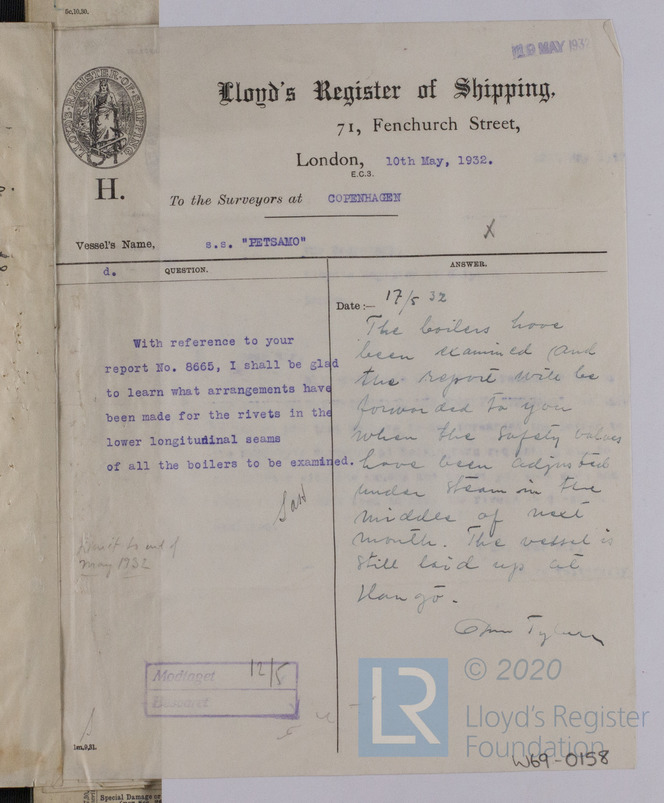 5c,10,50.
MAY 1932
Lloyd's Register of Shipping,
71, Fenchurch Street,
London, 10th May, 1932.
E.C.3.
LLOYD'S REGISTER OF SHIPPING
H.
To the Surveyors at COPENHAGEN
X
Vessel's Name, s.s. "PETSAMO"
d. QUESTION.
ANSWER.
With reference to your
report No. 8665, I shall be glad
to learn what arrangements have
been made for the rivets in the
lower longitudinal seams
of all the boilers to be examined.
limit to end of
May 1932
Modtaget 12/5
Besvaret
1m,9,31.
Date:— 17/5 32
The boilers have
been examined and
the report will be
forwarded to you
when the safety valves
have been adjusted
under steam in the
middle of next
month. The vessel is
still laid up at
Hangö.
LR
© 2020
Lloyd's Register
Foundation
W69-0158
Special Damage